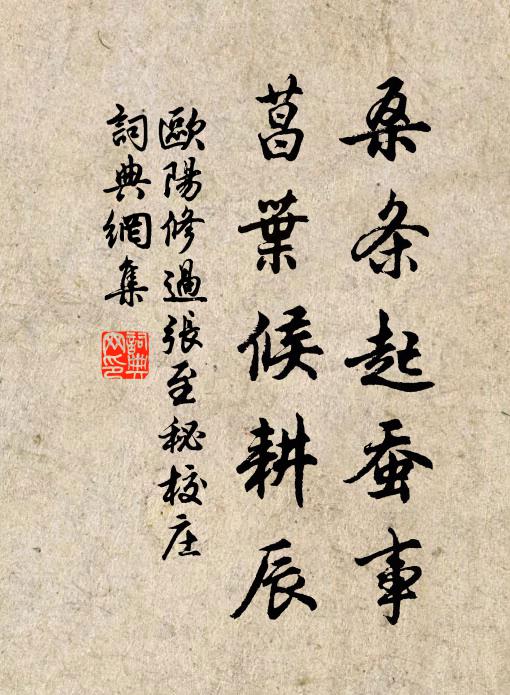 桑条起蚕事
菖葉候耕辰
歐陽修過張至秘校庄
詞典網集
詞典網印